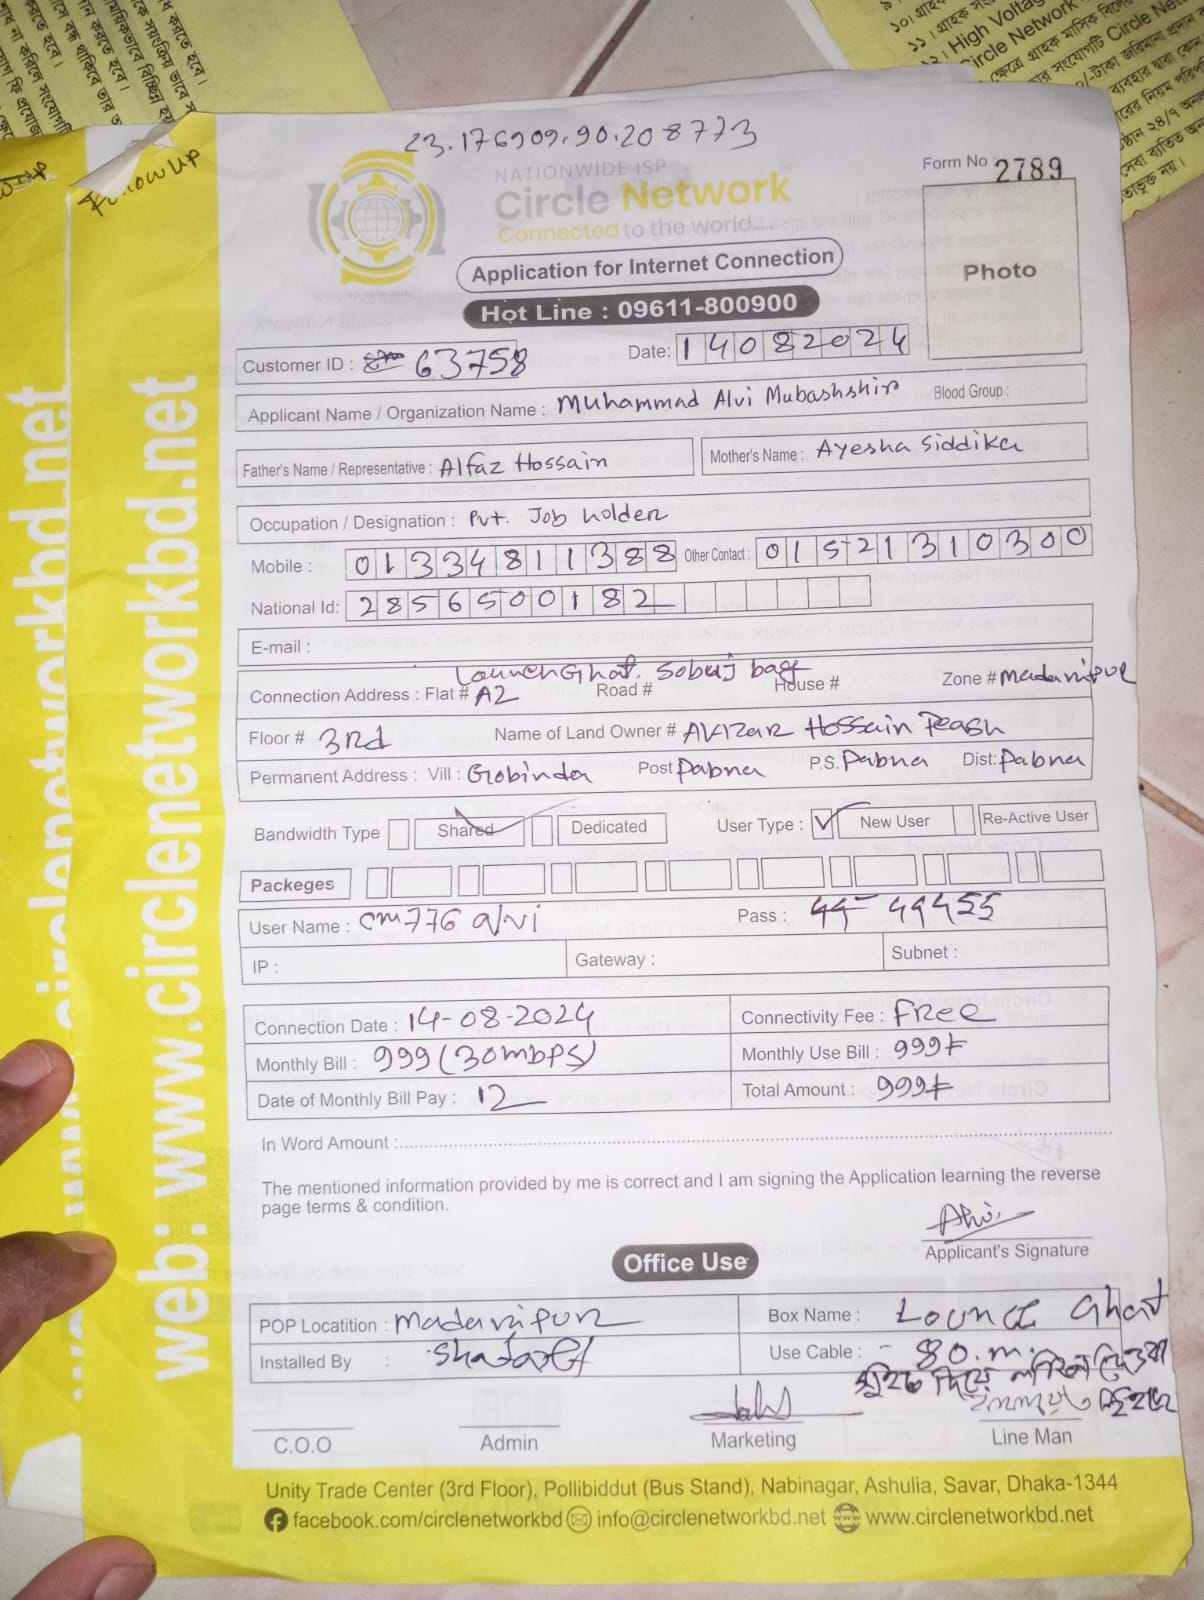 23.176909,90.208773
Follow Up
NATIONWIDE ISP
Circle Network
Connected to the world....
Form No : 2789
Photo
Application for Internet Connection
Hot Line : 09611-800900
Customer ID : 63758 Date: 14082024
Applicant Name / Organization Name : Muhammad Alvi Mubashshir Blood Group :
Father's Name / Representative : Alfaz Hossain Mother's Name : Ayesha Siddika
Occupation / Designation : Pvt. Job holder
Mobile : 01334811388 Other Contact : 01521310300
National Id: 2856500182
E-mail :
LaunchGhat. Sobuj bag
Connection Address : Flat # A2 Road # House # Zone # Madaripur
Floor # 3Rd Name of Land Owner # Hossain Peash
Permanent Address : Vill : Gobinda Post Pabna P.S. Pabna Dist: Pabna
Bandwidth Type Shared Dedicated User Type : New User Re-Active User
Packeges
User Name : cm776 alvi Pass : 44455
IP : Gateway : Subnet :
Connection Date : 14-08-2024 Connectivity Fee : Free
Monthly Bill : 999 (30mbps) Monthly Use Bill : 999৳
Date of Monthly Bill Pay : 12 Total Amount : 999৳
In Word Amount :
The mentioned information provided by me is correct and I am signing the Application learning the reverse
page terms & condition.
Alvi
Applicant's Signature
Office Use
POP Locatition : Madaripur Box Name : Lounce Ghat
Installed By : Use Cable : - 80.m.
C.O.O Admin Marketing Line Man
Unity Trade Center (3rd Floor), Pollibiddut (Bus Stand), Nabinagar, Ashulia, Savar, Dhaka-1344
facebook.com/circlenetworkbd info@circlenetworkbd.net www.circlenetworkbd.net
web: www.circlenetworkbd.net